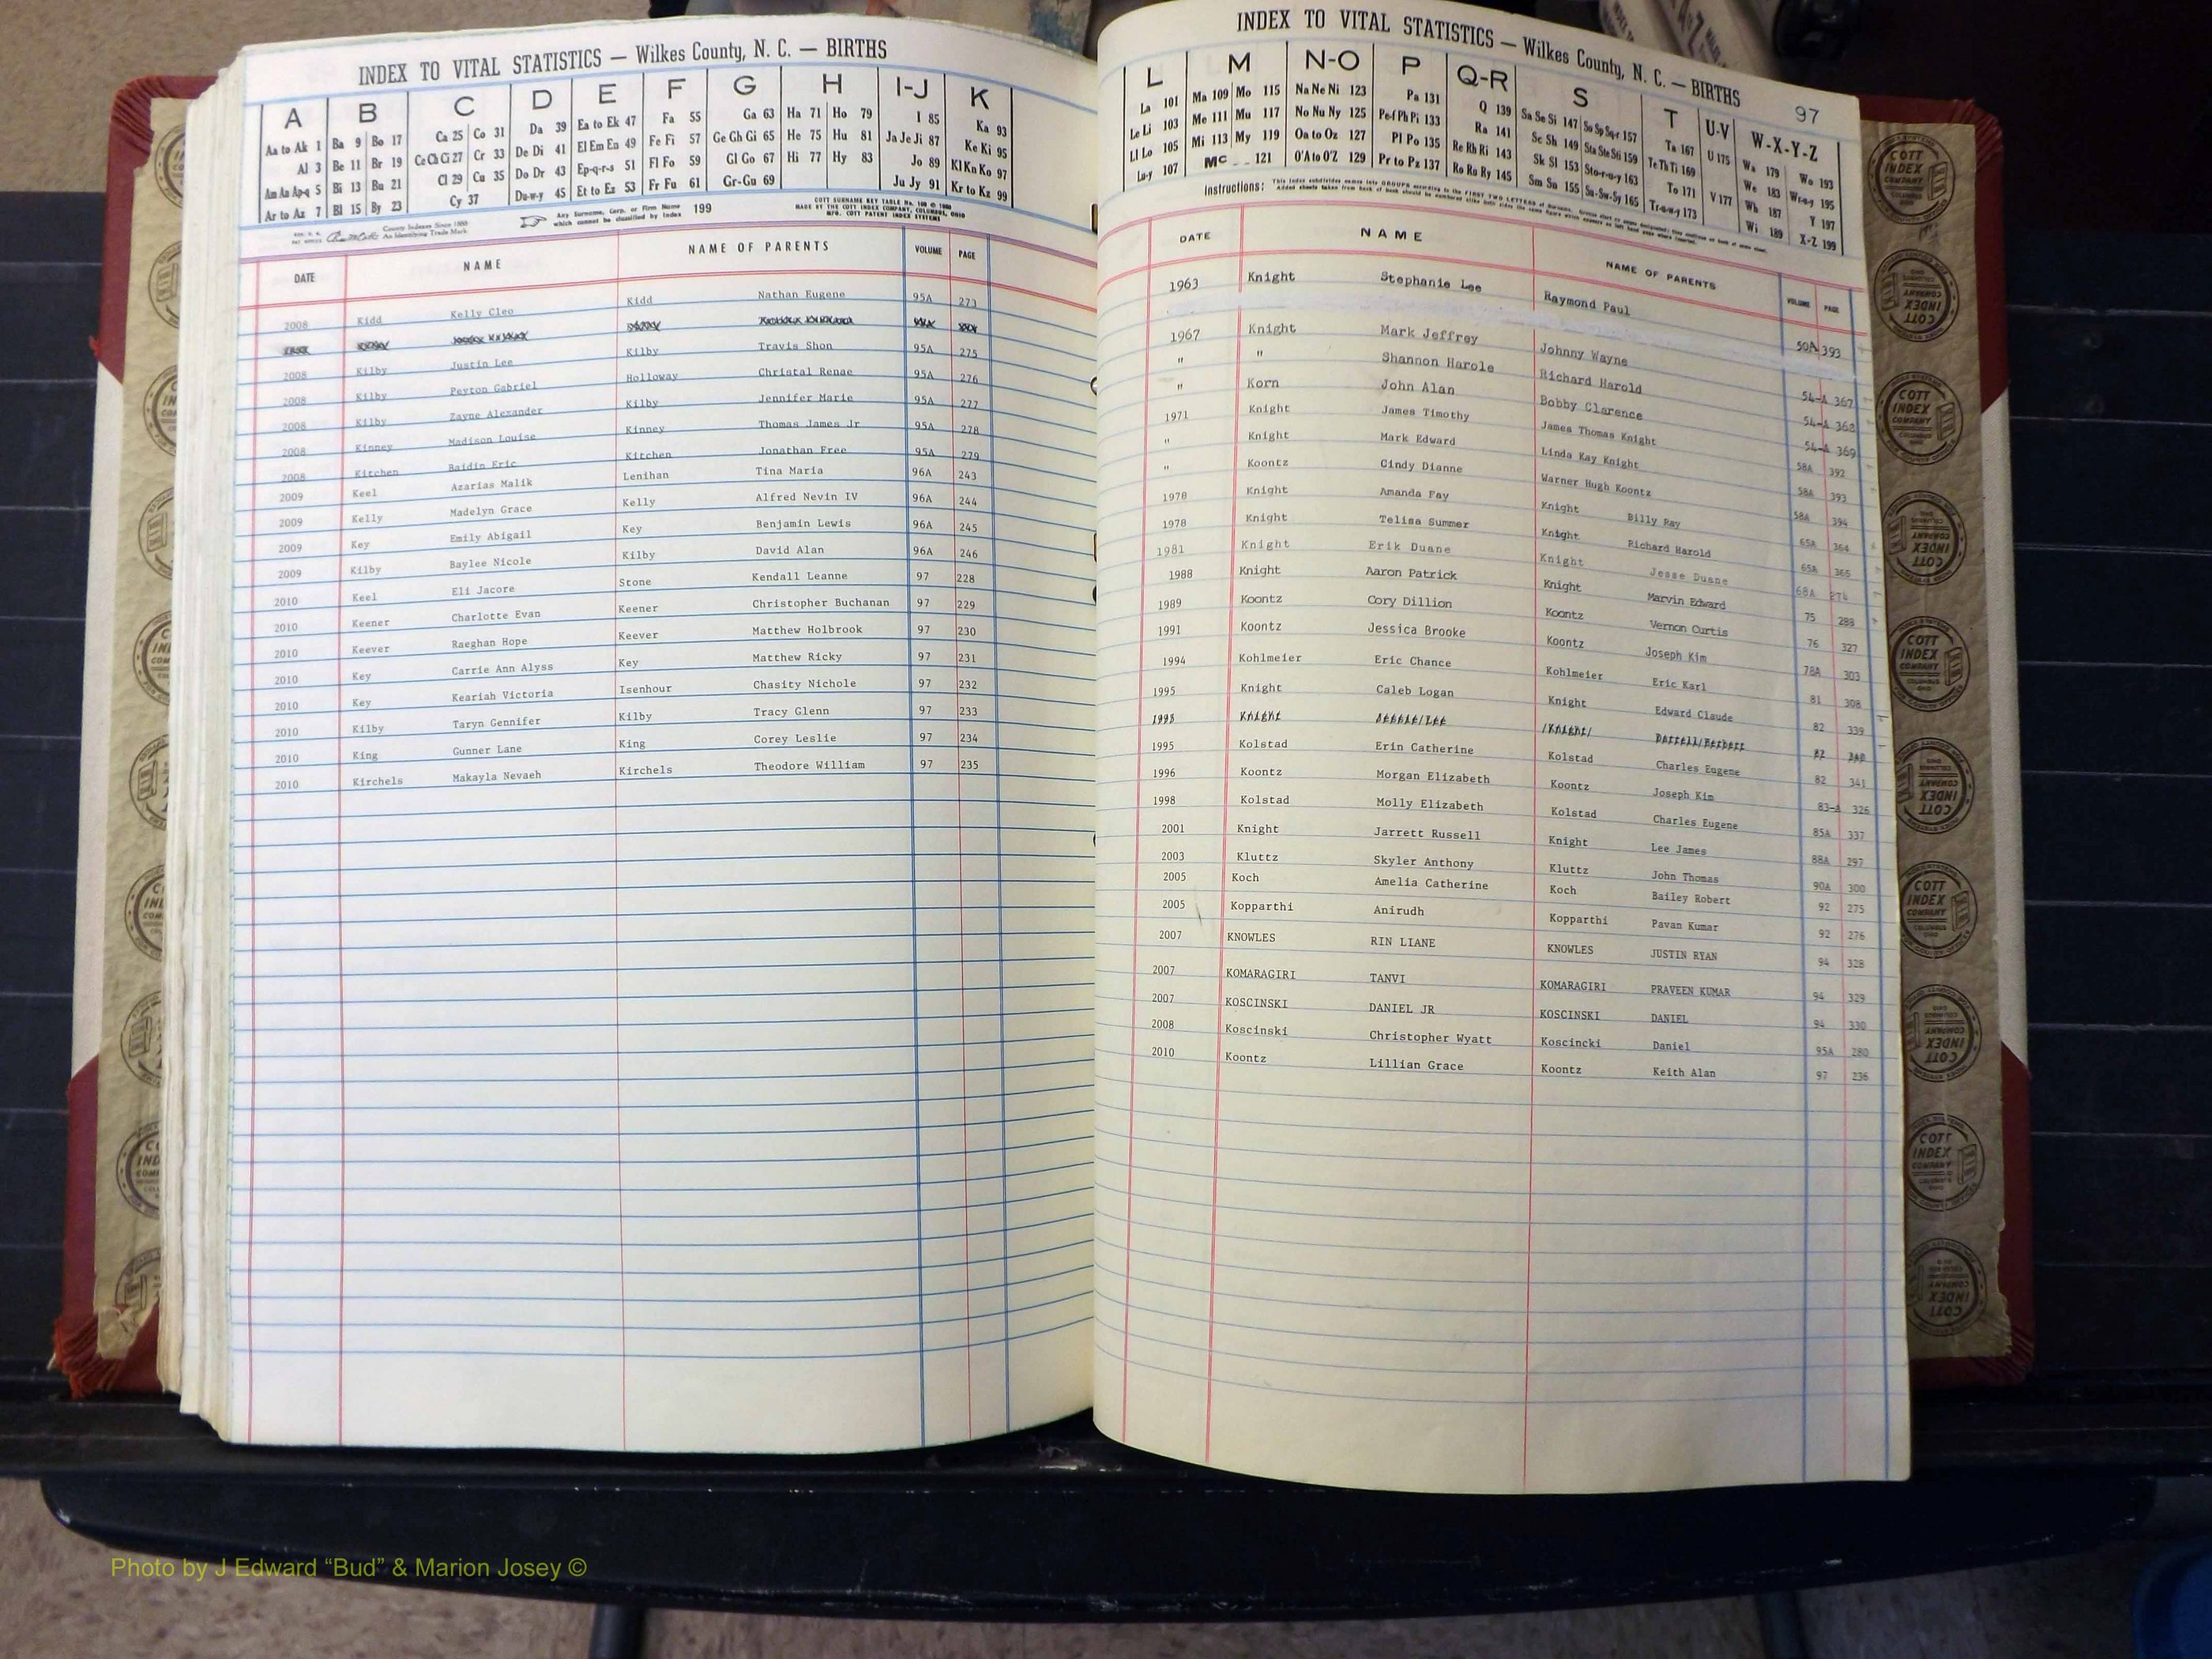 INDEX TO VITAL STATISTICS — Wilkes County, N. C. — BIRTHS
A B C D E F G H I-J K
Aa to Ak 1 Ba 9 Bo 17 Ca 25 Co 31 Da 39 Ea to Ek 47 Fa 55 Ga 63 Ha 71 Ho 79 I 85 Ka 93
Al 3 Be 11 Br 19 Ce Ch Ci 27 Cr 33 De Di 41 El Em En 49 Fe Fi 57 Ge Gh Gi 65 He 75 Hu 81 Ja Je Ji 87 Ke Ki 95
Am An Ap-q 5 Bi 13 Bu 21 Cl 29 Cu 35 Do Dr 43 Ep-q-r-s 51 Fl Fo 59 Gl Go 67 Hi 77 Hy 83 Jo 89 Kl Kn Ko 97
Ar to Az 7 Bl 15 By 23 Cy 37 Du-w-y 45 Et to Ez 53 Fr Fu 61 Gr-Gu 69 Ju Jy 91 Kr to Kz 99
County Indexes Since 1888
An Identifying Trade Mark
Any Surname, Corp. or Firm Name which cannot be classified by index 199
MADE BY THE COTT INDEX COMPANY, COLUMBUS, OHIO
MFG. COTT PATENT INDEX SYSTEMS
DATE NAME NAME OF PARENTS VOLUME PAGE
2008 Kidd Kelly Cleo Kidd Nathan Eugene 95A 273
2008 Kilby Justin Lee Kilby Travis Shon 95A 275
2008 Kilby Peyton Gabriel Holloway Christal Renae 95A 276
2008 Kilby Zayne Alexander Kilby Jennifer Marie 95A 277
2008 Kinney Madison Louise Kinney Thomas James Jr 95A 278
2008 Kitchen Baidin Eric Kitchen Jonathan Free 95A 279
2009 Keel Azarias Malik Lenihan Tina Maria 96A 243
2009 Kelly Madelyn Grace Kelly Alfred Nevin IV 96A 244
2009 Key Emily Abigail Key Benjamin Lewis 96A 245
2009 Kilby Baylee Nicole Kilby David Alan 96A 246
2010 Keel Eli Jacore Stone Kendall Leanne 97 228
2010 Keener Charlotte Evan Keener Christopher Buchanan 97 229
2010 Keever Raeghan Hope Keever Matthew Holbrook 97 230
2010 Key Carrie Ann Alyss Key Matthew Ricky 97 231
2010 Key Keariah Victoria Isenhour Chasity Nichole 97 232
2010 Kilby Taryn Gennifer Kilby Tracy Glenn 97 233
2010 King Gunner Lane King Corey Leslie 97 234
2010 Kirchels Makayla Nevaeh Kirchels Theodore William 97 235
INDEX TO VITAL STATISTICS — Wilkes County, N. C. — BIRTHS
97
L M N-O P Q-R S T U-V W-X-Y-Z
La 101 Ma 109 Mo 115 Na Ne Ni 123 Pa 131 Q 139 Sa Se Si 147 So Sp Sq-r 157 Ta 167 U 175 Wa 179 Wo 193
Le Li 103 Me 111 Mu 117 No Nu Ny 125 Pe-f Ph Pi 133 Ra 141 Sc Sh 149 Sta Ste Sti 159 Te Th Ti 169 We 183 Wr-u-y 195
Ll Lo 105 Mi 113 My 119 Oa to Oz 127 Pl Po 135 Re Rh Ri 143 Sk Sl 153 Sto-r-u-y 163 To 171 V 177 Wh 187 Y 197
Lu-y 107 Mc 121 O'A to O'Z 129 Pr to Pz 137 Ro Ru Ry 145 Sm Sn 155 Su-Sw-Sy 165 Tr-u-w-y 173 Wi 189 X-Z 199
Instructions:
DATE NAME NAME OF PARENTS VOLUME PAGE
1963 Knight Stephanie Lee Raymond Paul 50A 393
1967 Knight Mark Jeffrey Johnny Wayne 54-A 367
" " Shannon Harole Richard Harold 54-A 368
" Korn John Alan Bobby Clarence 54-A 369
1971 Knight James Timothy James Thomas Knight 58A 392
" Knight Mark Edward Linda Kay Knight 58A 393
" Koontz Cindy Dianne Warner Hugh Koontz 58A 394
1978 Knight Amanda Fay Knight Billy Ray 65A 364
1978 Knight Telisa Summer Knight Richard Harold 65A 365
1981 Knight Erik Duane Knight Jesse Duane 68A 274
1988 Knight Aaron Patrick Knight Marvin Edward 75 288
1989 Koontz Cory Dillion Koontz Vernon Curtis 76 327
1991 Koontz Jessica Brooke Koontz Joseph Kim 78A 303
1994 Kohlmeier Eric Chance Kohlmeier Eric Karl 81 308
1995 Knight Caleb Logan Knight Edward Claude 82 339
1995 Knight Knight 82 340
1995 Kolstad Erin Catherine Kolstad Charles Eugene 82 341
1996 Koontz Morgan Elizabeth Koontz Joseph Kim 83-A 326
1998 Kolstad Molly Elizabeth Kolstad Charles Eugene 85A 337
2001 Knight Jarrett Russell Knight Lee James 88A 297
2003 Kluttz Skyler Anthony Kluttz John Thomas 90A 300
2005 Koch Amelia Catherine Koch Bailey Robert 92 275
2005 Kopparthi Anirudh Kopparthi Pavan Kumar 92 276
2007 KNOWLES RIN LIANE KNOWLES JUSTIN RYAN 94 328
2007 KOMARAGIRI TANVI KOMARAGIRI PRAVEEN KUMAR 94 329
2007 KOSCINSKI DANIEL JR KOSCINSKI DANIEL 94 330
2008 Koscinski Christopher Wyatt Koscincki Daniel 95A 280
2010 Koontz Lillian Grace Koontz Keith Alan 97 236
COTT INDEX COMPANY
Photo by J Edward “Bud” & Marion Josey ©